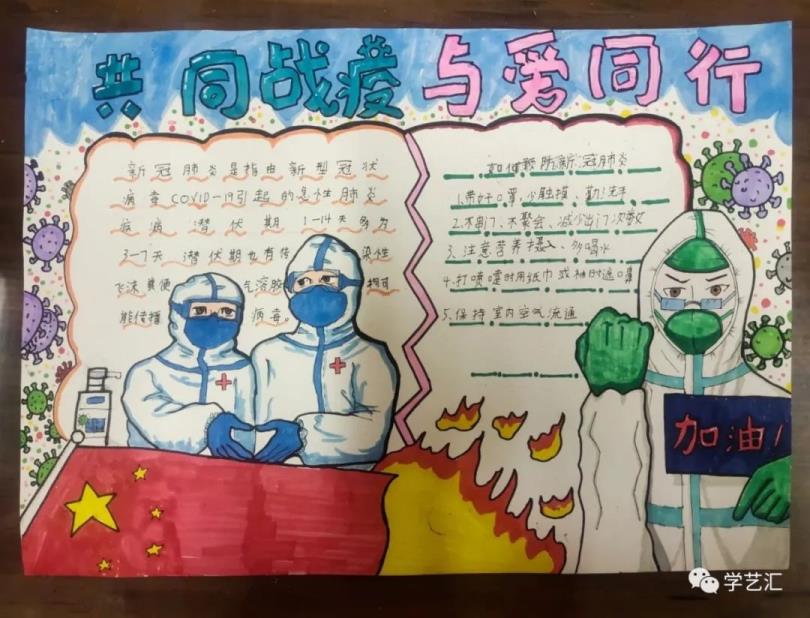 共同战疫 与爱同行
新冠肺炎是指由新型冠状
病毒COVID-19引起的急性肺炎
疾病 潜伏期 1-14天 多为
3-7天 潜伏期也有传染性
飞沫 粪便 气溶胶 均可
能传播 病毒。
如何预防新冠肺炎
1.带好口罩,少触摸、勤洗手
2.不串门、不聚会、减少出门次数
3、注意营养摄入、多喝水
4.打喷嚏时用纸巾或袖时遮鼻
5、保持室内空气流通
加油!
学艺汇